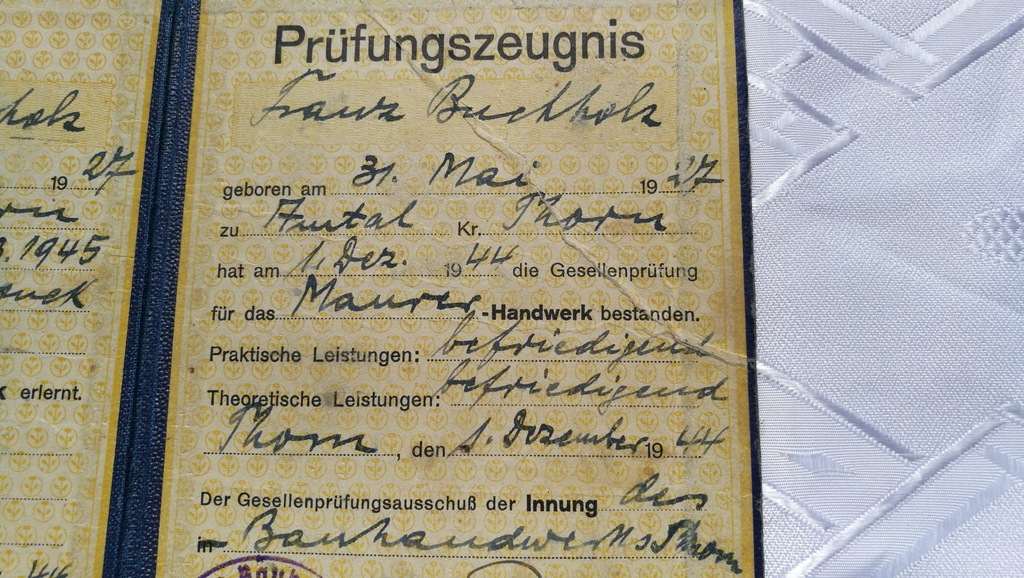 holz
19 27
3. 1945
erlernt.
Prüfungszeugnis
Franz Buchholz
geboren am 31. Mai 1927
zu Amtal Kr. Thorn
hat am 1. Dez. 1944 die Gesellenprüfung
für das Maurer-Handwerk bestanden.
Praktische Leistungen: befriedigend
Theoretische Leistungen: befriedigend
Thorn, den 1. Dezember 1944
Der Gesellenprüfungsausschuß der Innung des
in Bauhandwerks Thorn